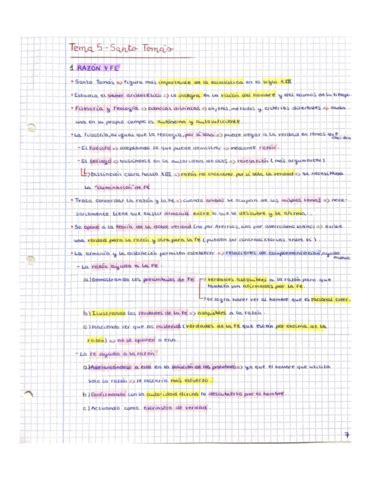 Tema 5 - Santo Tomás
1. RAZÓN Y FE
· Santo Tomás => figura más importante de la escolástica en el siglo XIII
· Estudia el saber aristotélico y lo integra en la visión del hombre y del mundo de
· Filosofía y Teología => ciencias distintas => objetos, métodos y criterios diferentes => cada
una en su propio campo es autónoma y autosuficiente
· La Filosofía, al igual que la teología, por sí sola => puede llegar a la verdad en temas
· El filósofo => aceptando lo que puede demostrar => mediante razón.
· El teólogo => basándose en la autoridad de dios => revelación (más argumentos)
razón no encuentra por sí sola la verdad => se necesitaba
la "iluminación" de Fe
· Trata conciliar la razón y la Fe => cuando ambas se ocupan de los mismos temas => nece-
sariamente tiene que existir armonía entre lo que se descubre y se afirma.
· Se opone a la teoría de la doble verdad (no por Averroes, sino por averroístas latinos) => existe
una verdad para la razón y otra para la Fe (pueden ser contradictorias entre sí).
· La armonía y la distinción permiten establecer => relaciones de complementación/ayuda
- La razón ayuda a la Fe:
a) Demostrando los preámbulos de Fe
verdades asequibles a la razón pero que
también son afirmadas por la Fe.
se logra hacer ver al hombre que es racional creer.
b) Ilustrando las verdades de la Fe => asequibles a la razón.
c) Haciendo ver que los misterios (verdades de la Fe que están por encima de la
razón) => no se oponen a ella.
- La Fe ayuda a la razón:
a) en la solución de los problemas => ya que el hombre que utiliza
solo la razón => le resulta más esfuerzo.
b) Confirmando con la autoridad divina lo descubierto por el hombre.
c) Actuando como criterio de verdad.
7